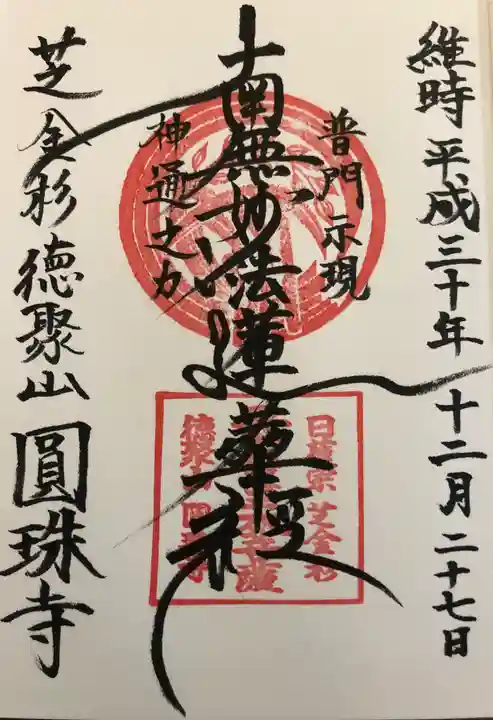 維時 平成三十年 十二月二十七日
普門示現
南無妙法蓮華経
神通之力
芝金杉徳聚山圓珠寺
日蓮宗 芝金杉